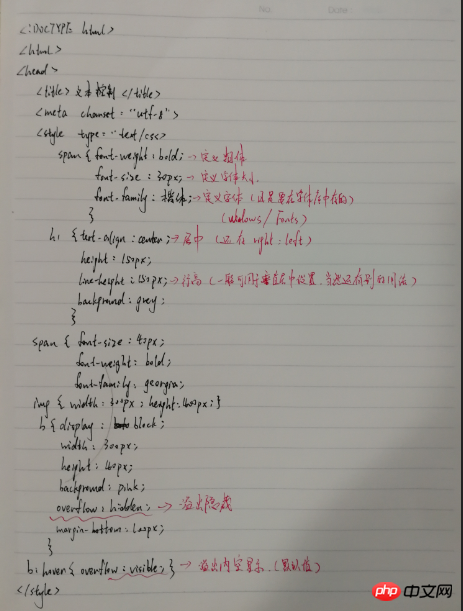 No. Date
<!DOCTYPE html>
<html>
<head>
<title>文本控制</title>
<meta charset="utf-8">
<style type="text/css>
span { font-weight: bold; →定义粗体
font-size: 30px; →定义字体大小
font-family: 楷体; →定义字体（这是要在字体库中存在的）
} (Windows/Fonts)
h1 { text-align: center; →居中（还有right; left）
height: 150px;
line-height: 150px; →行高（一般可用于垂直居中设置，当然还有别的用法）
background: grey;
}
}
span { font-size: 40px;
font-weight: bold;
font-family: georgia;
img { width: 300px; height: 400px; }
b { display: block;
width: 300px;
height: 40px;
background: pink;
overflow: hidden; → 溢出隐藏
margin-bottom: 100px;
}
b:hover { overflow: visible; } → 溢出内容显示.（默认值）
</style>
php中文网